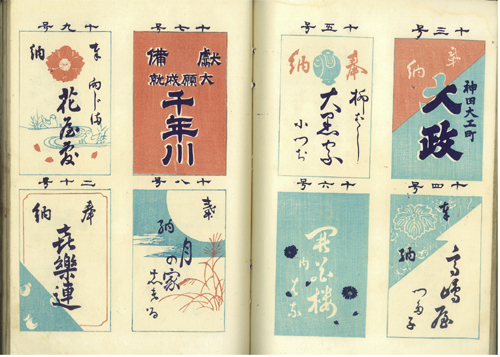 十三号
奉納
神田大工町
大政
十四号
奉納
高嶋屋
十五号
奉納
柳ばし
大黒家
十六号
内
十七号
獻備
大願成就
千年川
十八号
奉納
月の家
十九号
奉納
向じま
花屋敷
二十号
奉納
喜樂連